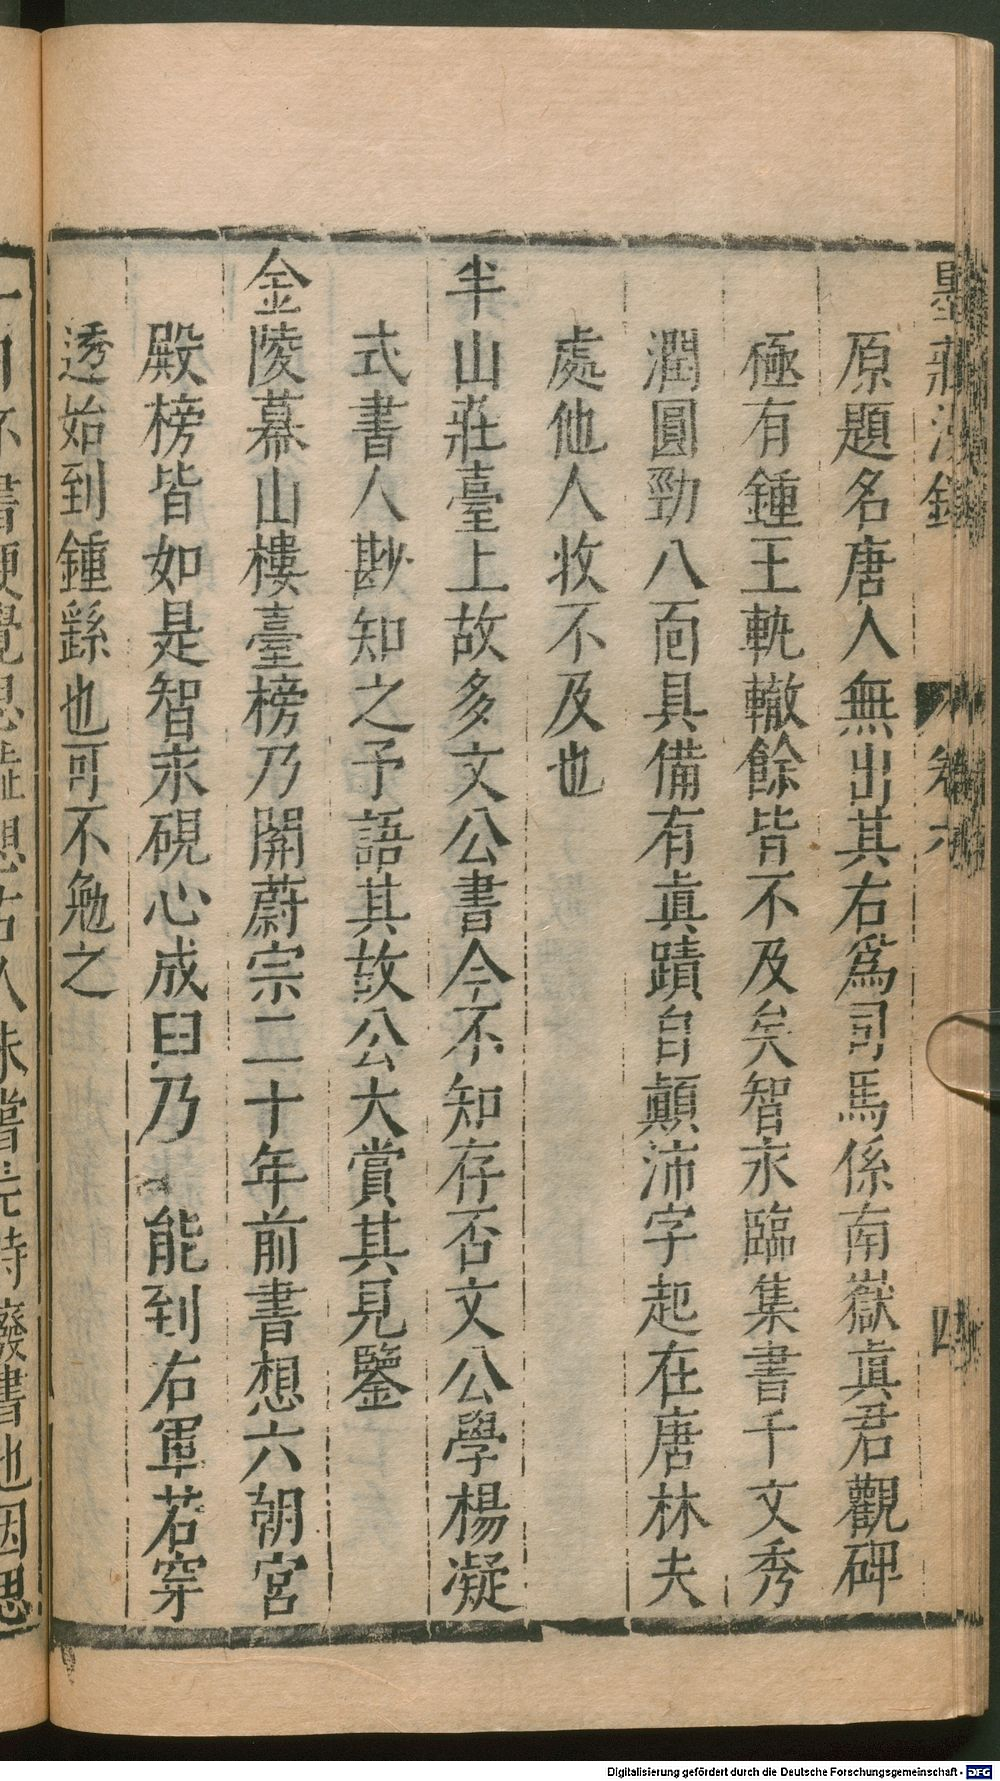 墨莊漫錄 卷六 四
原題名唐人無出其右爲司馬係南嶽眞君觀碑
極有鍾王軌轍餘皆不及矣智永臨集書千文秀
潤圓勁八面具備有眞蹟自顚沛字起在唐林夫
處他人收不及也
半山莊臺上故多文公書今不知存否文公學楊凝
式書人尠知之予語其故公大賞其見鑒
金陵幕山樓臺榜乃關蔚宗二十年前書想六朝宮
殿榜皆如是智永硯心成臼乃 能到右軍若穿
透始到鍾繇也可不勉之
Digitalisierung gefördert durch die Deutsche Forschungsgemeinschaft - DFG